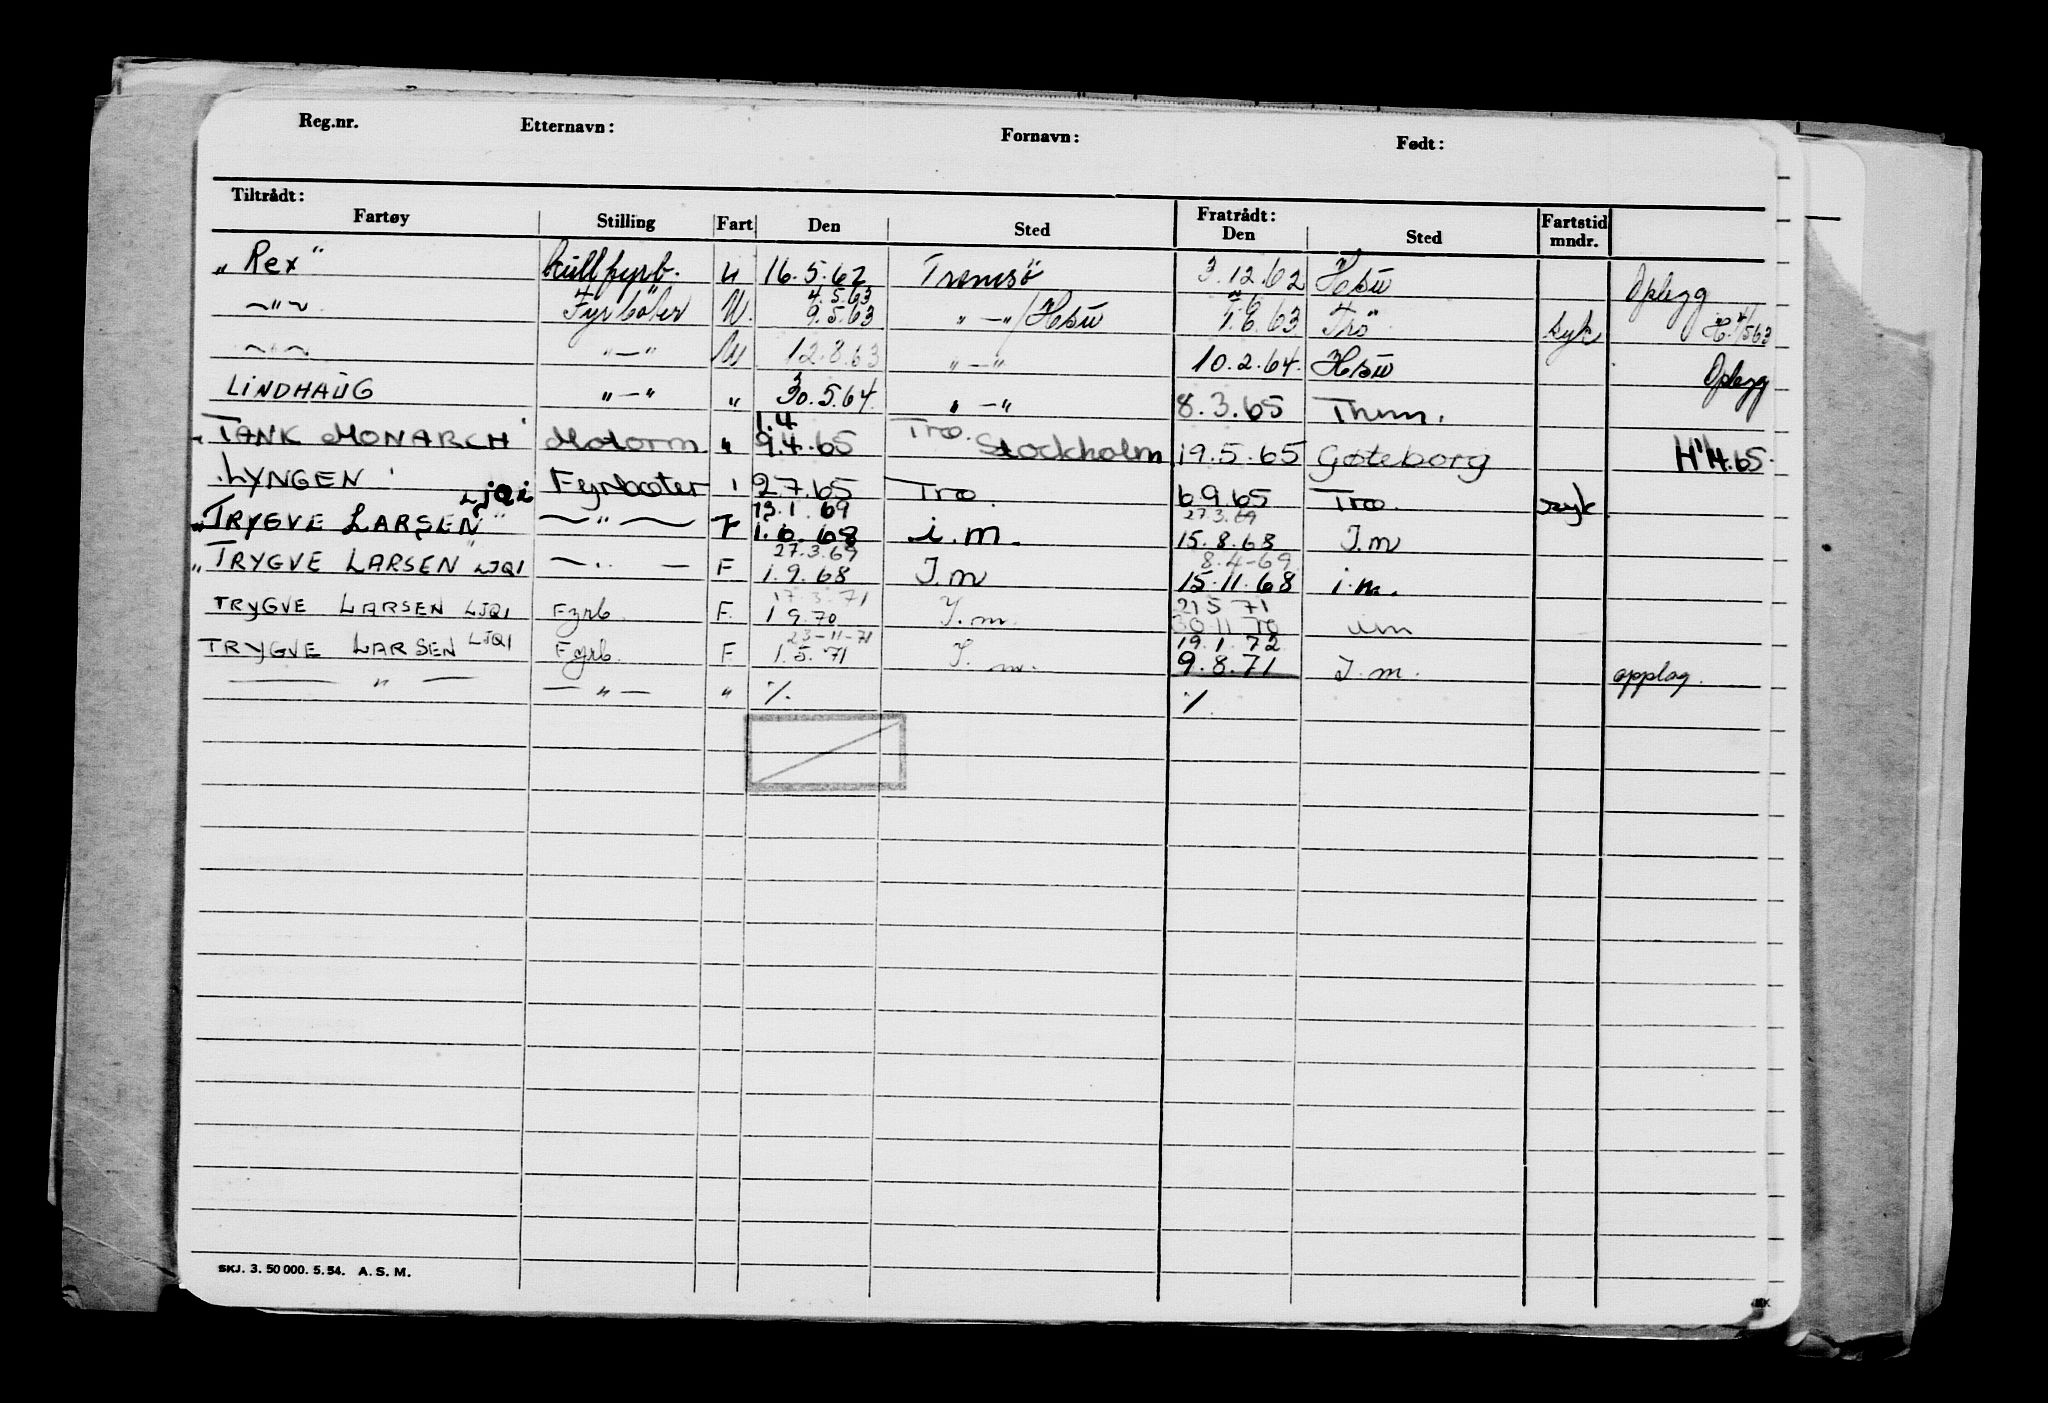 Reg.nr. Etternavn: Fornavn: Født:
Tiltrådt: Fratrådt:
Fartøy Stilling Fart Den Sted Den Sted Fartstid mndr.
„Rex" kullfyrb. U 16.5.62 Tromsö 3.12.62 Hbsu Oplegg
—"— Fyrböter U. 4.5.63 9.5.63 „—"/Hbsu 7.6.63 Trö syk
—"— „—" U 12.8.63 „—" 10.2.64. Hbsu Oplegg
LINDHAUG „—" „ 30.5.64. „—" 8.3.65 Thm.
„TANK MONARCH" Motorm „ 1.4 9.4.65 Trø. Stockholm 19.5.65 Gøteborg H 1/4.65.
LYNGEN Fyrbøter 27.65 Trø 6.9.65 Trø. syk
„TRYGVE LARSEN" LJQI —"— F 13.1.69 1.6.68 i.m. 27.3.69 15.8.68 I.m
„TRYGVE LARSEN" LJQI —"— F 27.3.69 1.9.68 I.m 8.4-69 15.11.68 i.m.
TRYGVE LARSEN LJQI Fyrb. F. 17.3.71 1.9.70 I.m. 21571 30.11.70 im
TRYGVE LARSEN LJQI Fyrb. F. 23-11-71 1.5.71 I.m. 19.1.72 9.8.71 I.m. opplag.
—"— —"— " ⁒ ⁒
SKJ. 3. 50 000. 5. 54. A. S. M.